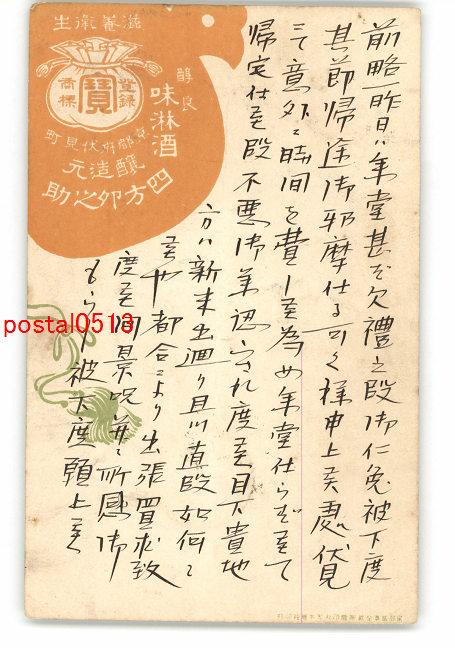 滋養衛生
登録
寳
商標
醇良
味淋酒
京都府伏見町
釀造元
四方卯之助
前略一昨日ハ参堂甚だ欠禮之段御仁免被下度
其節帰途御邪摩仕る可く様申上候處伏見
ニて意外ニ時間を費し候為め参堂仕らずして
帰宅仕候段不悪御承認下され度候目下貴地
方ハ新米出廻り且ツ直段如何ニ
候や都合ニより出張買求致
度候間景况等
御
もらし被下度願上候
postal0513